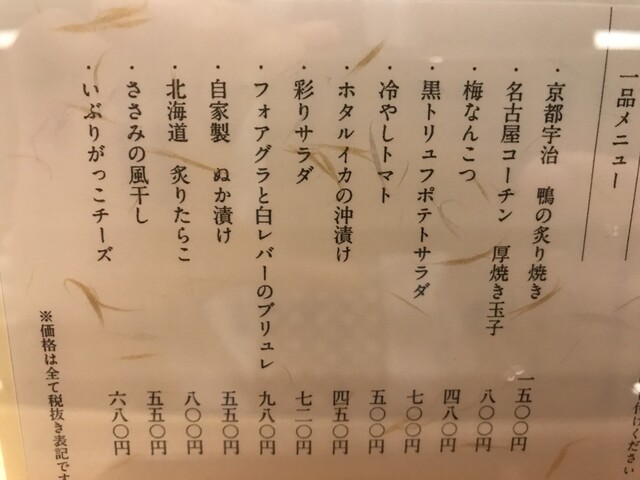 付けください
一品メニュー
・京都宇治　鴨の炙り焼き　一五〇〇円
・名古屋コーチン　厚焼き玉子　八〇〇円
・梅なんこつ　四八〇円
・黒トリュフポテトサラダ　七〇〇円
・冷やしトマト　五〇〇円
・ホタルイカの沖漬け　四五〇円
・彩りサラダ　七二〇円
・フォアグラと白レバーのブリュレ　九八〇円
・自家製　ぬか漬け　五五〇円
・北海道　炙りたらこ　八〇〇円
・ささみの風干し　五五〇円
・いぶりがっこチーズ　六八〇円
※価格は全て税抜き表記です